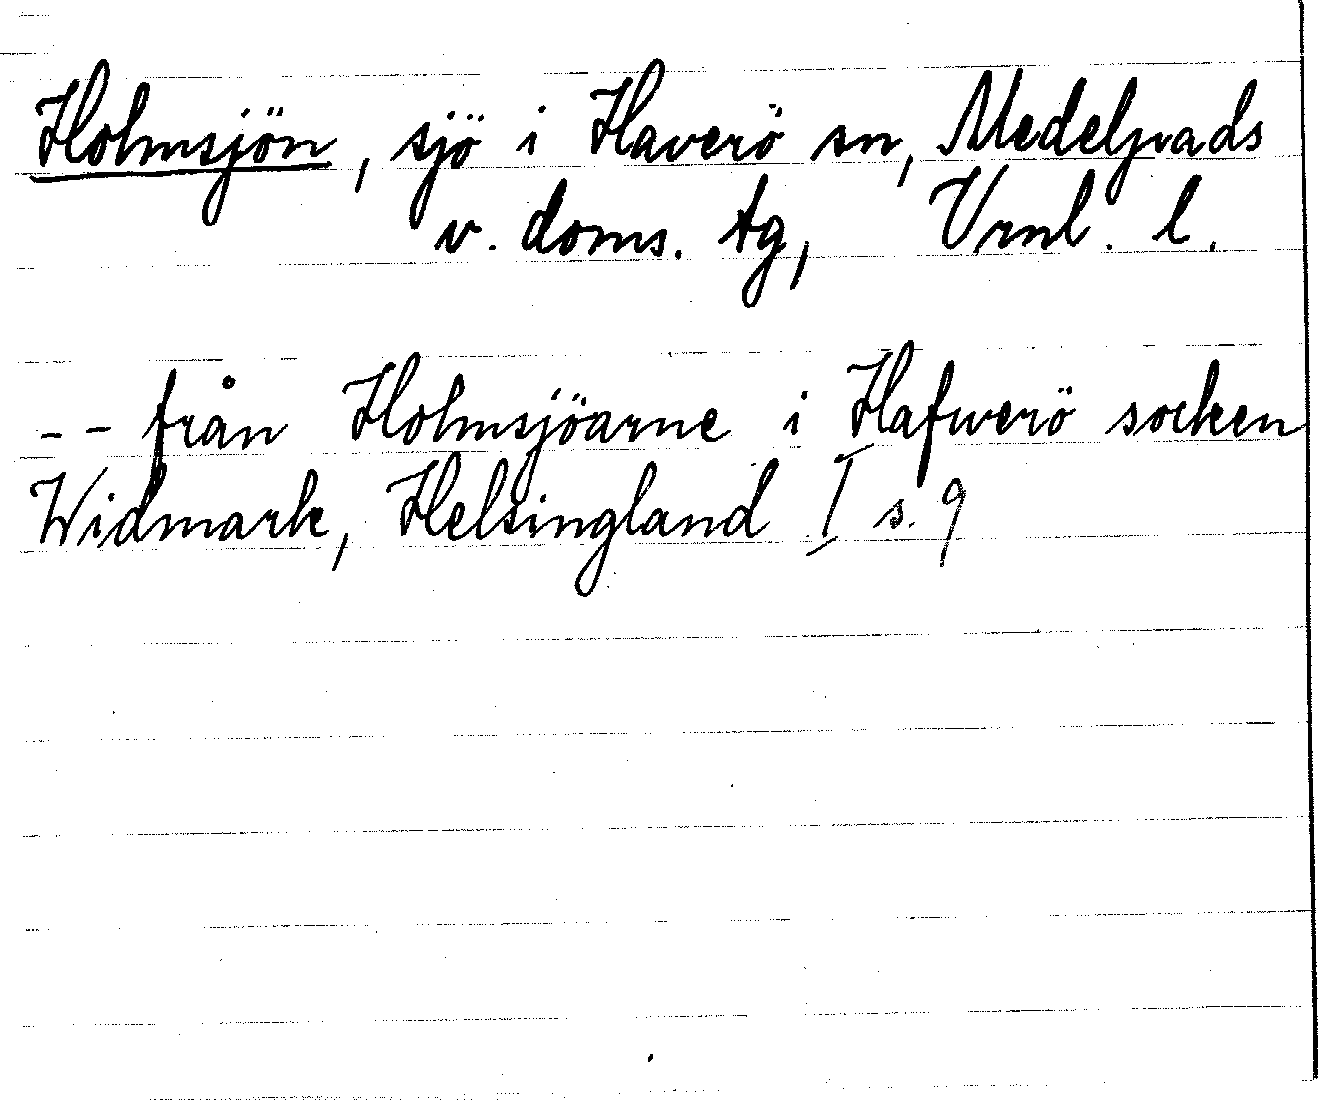 Holmsjön, sjö i Haverö sn, Medelpads
v. doms. tg, Vrnl. l.
-- från Holmsjöarne i Hafwerö socken
Widmark, Helsingland I s. 9